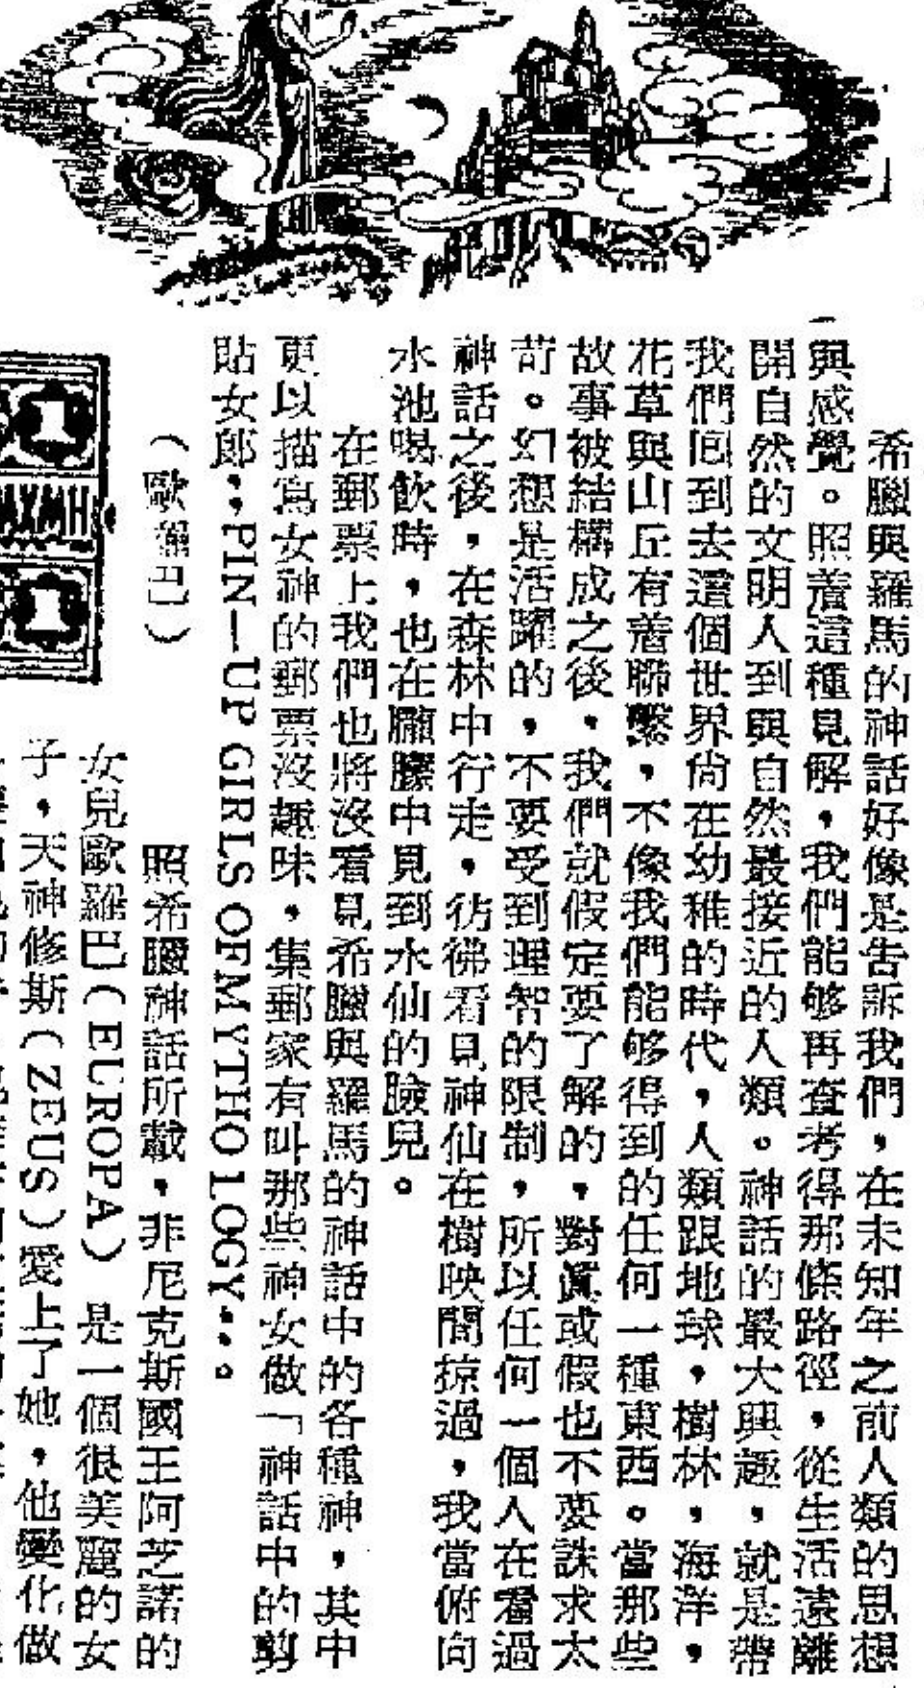 希臘與羅馬的神話好像是告訴我們，在未知年之前人類的思想
與感覺。照着這種見解，我們能够再查考得那條路徑，從生活遠離
開自然的文明人到與自然最接近的人類。神話的最大興趣，就是帶
我們囘到去這個世界尙在幼稚的時代，人類跟地球，樹林，海洋，
花草與山丘有着聯繫，不像我們能够得到的任何一種東西。當那些
故事被結構成之後，我們就假定要了解的，對眞或假也不要誅求太
苛。幻想是活躍的，不要受到理智的限制，所以任何一個人在看過
神話之後，在森林中行走，彷彿看見神仙在樹映間掠過，我當俯向
水池喝飮時，也在朦朧中見到水仙的臉兒。
在郵票上我們也將沒看見希臘與羅馬的神話中的各種神，其中
更以描寫女神的郵票沒趣味，集郵家有叫那些神女做「神話中的剪
貼女郎：PIN—UP GIRLS OFMYTHO LOGY：。
（歐羅巴）
照希臘神話所載，非尼克斯國王阿芝諾的
女兒歐羅巴（EUROPA）是一個很美麗的女
子，天神修斯（ZEUS）愛上了她，他變化做
1
1